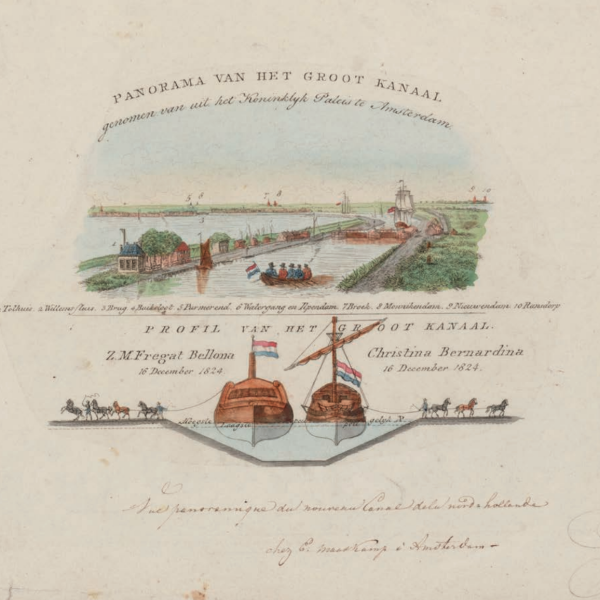 PANORAMA VAN HET GROOT KANAAL
genomen van uit het Koninklyk Paleis te Amsterdam.
5 6
7 8
9 10
Tolhuis. 2 Willemssluis. 3 Brug 4 Buiksloot 5 Purmerend. 6 Watergang en Ilpendam 7 Broek. 8 Monnikendam. 9 Nieuwendam 10 Ransdorp
PROFIL VAN HET GROOT KANAAL.
Z.M. Fregat Bellona
16 December 1824
Christina Bernardina
16 December 1824.
Vue panoramique du nouveau Canal de la nordhollande
chez E. Maaskamp à Amsterdam